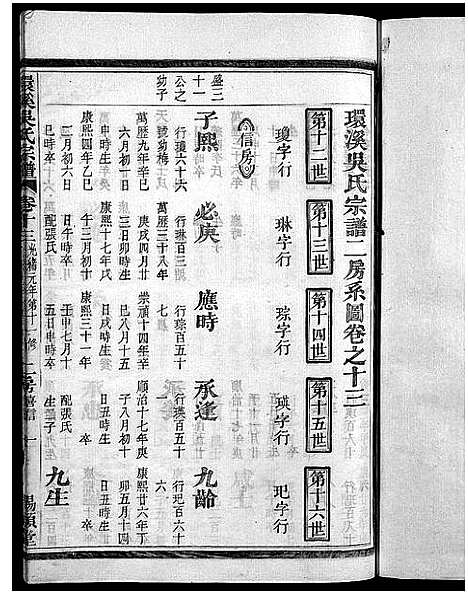 環溪吳氏宗譜二房系圖卷之十三
第十二世
第十三世
第十四世
第十五世
第十六世
瓊字行
琳字行
琮字行
瑛字行
玘字行
信房
盛三
十一
公之
幼子
子熙
行瓊六十六
萬歷九年辛巳
六月初一日
申時生
康熙四年乙巳
二月初六日
巳時卒
必庚
行琳百三
萬歷三十八年
庚戌四月廿
三日卯時生
康熙十七年戊
午三月初十
日午時卒
配張氏
應時
行琮百五十
七
崇禎十四年辛
巳八月十五
日戌時生
康熙三十一年
壬申七月十
五日申時卒
承逢
行瑛百五十
一
順治十七年庚
子八月初十
日丑時生
卒
配張氏
生一子
九齡
行玘百六十
六
康熙廿六年丁
卯五月十四
日丑時生
卒
九生
環溪吳氏宗譜
卷十三
光緒元年第十一修
二房
信